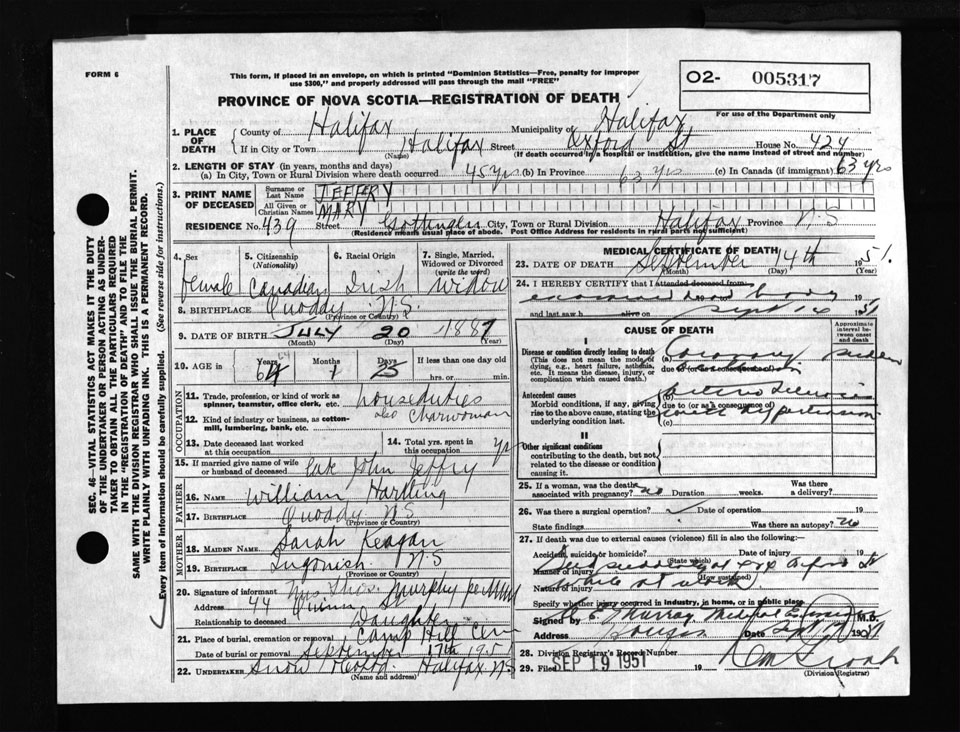 FORM 6
This form, if placed in an envelope, on which is printed "Dominion Statistics—Free, penalty for improper
use $300," and properly addressed will pass through the mail "FREE"
O2- 005317
For use of the Department only
PROVINCE OF NOVA SCOTIA—REGISTRATION OF DEATH
1. PLACE OF DEATH
County of Halifax Municipality of Halifax
If in City or Town Halifax Street Oxford St House No. 424
(Name) (If death occurred in a hospital or institution, give the name instead of street and number)
2. LENGTH OF STAY (in years, months and days)
(a) In City, Town or Rural Division where death occurred 45 yrs (b) In Province 63 yrs (c) In Canada (if immigrant) 63 yrs
3. PRINT NAME OF DECEASED
Surname or Last Name JEFFERY
All Given or Christian Names MARY
RESIDENCE No. 439 Street Gottingen City, Town or Rural Division Halifax Province N.S
(Residence means usual place of abode. Post Office Address for residents in rural parts not sufficient)
4. Sex
Female
5. Citizenship
(Nationality)
Canadian
6. Racial Origin
Irish
7. Single, Married, Widowed or Divorced
(write the word)
Widow
8. BIRTHPLACE Quoddy N.S.
(Province or Country)
9. DATE OF BIRTH JULY 20 1887
(Month) (Day)
10. AGE in
Years 64 Months 1 Days 23
If less than one day old
hrs. or min.
OCCUPATION
11. Trade, profession, or kind of work as spinner, teamster, office clerk, etc. houseduties
12. Kind of industry or business, as cotton-mill, lumbering, bank, etc. also Charwoman
13. Date deceased last worked at this occupation.
14. Total yrs. spent in this occupation. yr
15. If married give name of wife or husband of deceased late John Jeffry
FATHER
16. NAME William Hartling
17. BIRTHPLACE Quoddy N.S
(Province or Country)
MOTHER
18. MAIDEN NAME Sarah Keagan
19. BIRTHPLACE Ingonish N.S
(Province or Country)
20. Signature of informant Mrs Thos Murphy per
Address 44 St
Relationship to deceased Daughter
21. Place of burial, cremation or removal Camp Hill Cem
Date of burial or removal September 17th 195
22. UNDERTAKER Snow Halifax N.S
(Name and address)
MEDICAL CERTIFICATE OF DEATH
23. DATE OF DEATH September 14th 1951.
(Month) (Day) (Year)
24. I HEREBY CERTIFY that I attended deceased from
examined dead body
and last saw h alive on Sept 14 1951
CAUSE OF DEATH
Approximate interval between onset and death
I
Disease or condition directly leading to death
(This does not mean the mode of dying, e.g., heart failure, asthenia, etc. It means the disease, injury, or complication which caused death.)
(a) Coronary
due to (or as a consequence of)
Antecedent causes
Morbid conditions, if any, giving rise to the above cause, stating the underlying condition last.
(b)
due to (or as a consequence of)
(c) hypertension
II
Other significant conditions
contributing to the death, but not related to the disease or condition causing it.
25. If a woman, was the death associated with pregnancy? no Duration weeks. Was there a delivery?
26. Was there a surgical operation? Date of operation 19
State findings Was there an autopsy? no
27. If death was due to external causes (violence) fill in also the following:—
Accident, suicide or homicide? Date of injury 19
(State which)
Manner of injury Died suddenly at Oxford St
(How sustained)
Nature of injury while at work
Specify whether injury occurred in industry, in home, or in public place
Signed by Murray Medical Examiner M.D.
Address Date Sept 1951
28. Division Registrar's Record Number
29. Filed SEP 19 1951
(Division Registrar)
SEC. 46—VITAL STATISTICS ACT MAKES IT THE DUTY
OF THE UNDERTAKER OR PERSON ACTING AS UNDER-
TAKER TO OBTAIN ALL THE PARTICULARS REQUIRED
IN THE "REGISTRATION OF DEATH" AND TO FILE THE
SAME WITH THE DIVISION REGISTRAR WHO SHALL ISSUE THE BURIAL PERMIT.
WRITE PLAINLY WITH UNFADING INK. THIS IS A PERMANENT RECORD.
Every item of information should be carefully supplied. (See reverse side for instructions.)